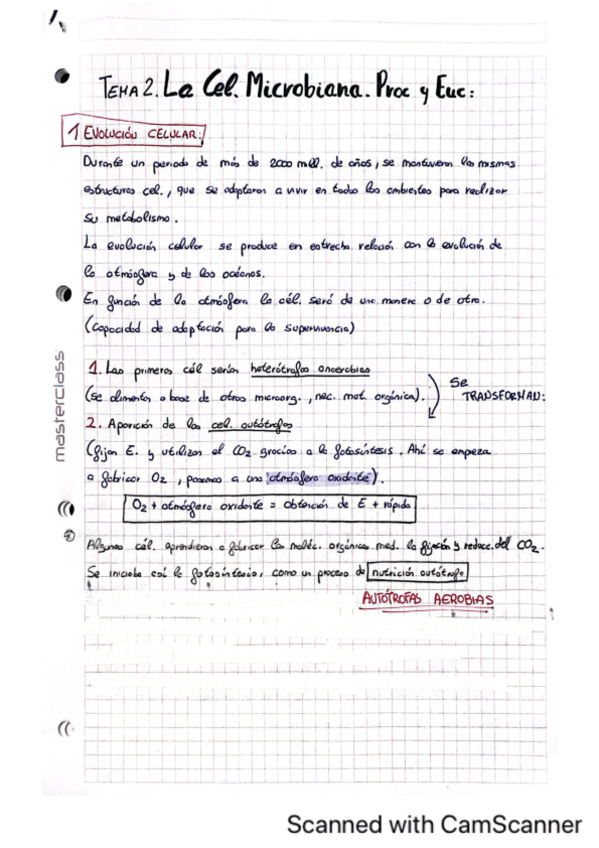 TEMA 2. La Cel. Microbiana. Proc y Euc:
1 EVOLUCIÓN CELULAR:
Durante un periodo de más de 2000 mill. de años, se mantuvieron las mismas
estructuras cel., que se adaptaron a vivir en todos los ambientes para realizar
su metabolismo.
La evolución celular se produce en estrecha relación con la evolución de
la atmósfera y de los océanos.
En función de la atmósfera la cél. será de una manera o de otra.
(Capacidad de adaptación para la supervivencia)
1. Las primeras cél serían heterótrofas anaerobias
(se alimentan a base de otros microorg., nec. mat. orgánica).
SE
TRANSFORMAN:
2. Aparición de las cel. autótrofas
(fijan E. y utilizan el CO2 gracias a la fotosíntesis. Ahí se empieza
a fabricar O2, pasamos a una atmósfera oxidante).
O2 + atmósfera oxidante = obtención de E + rápida
Algunas cél. aprendieron a fabricar las moléc. orgánicas med. la fijación y reducc. del CO2.
Se iniciaba así la fotosíntesis, como un proceso de nutrición autótrofa
AUTÓTROFAS AEROBIAS
masterclass
Scanned with CamScanner